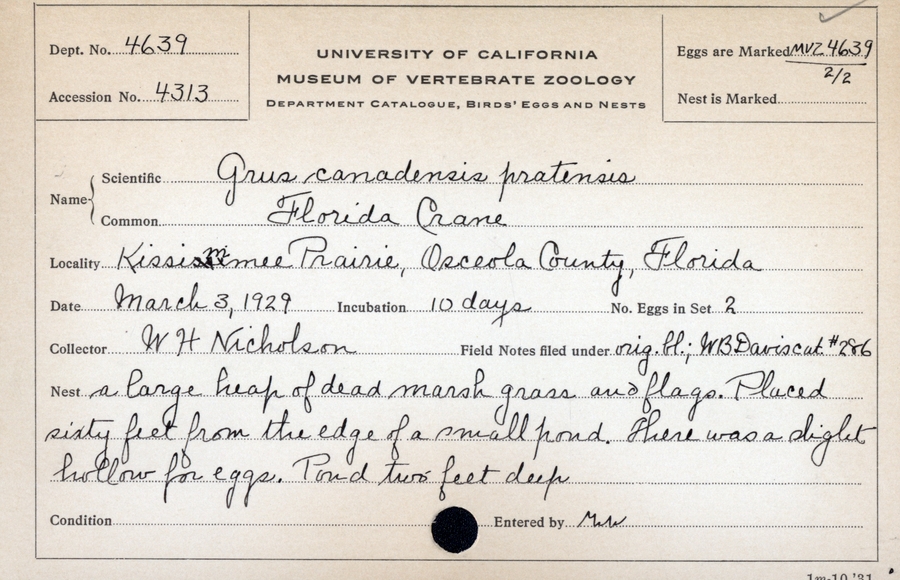 Dept. No. 4639
Accession No. 4313
UNIVERSITY OF CALIFORNIA
MUSEUM OF VERTEBRATE ZOOLOGY
DEPARTMENT CATALOGUE, BIRDS' EGGS AND NESTS
Eggs are Marked MVZ 4639
2/2
Nest is Marked
Name
Scientific Grus canadensis pratensis
Common Florida Crane
Locality Kissimmee Prairie, Osceola County, Florida
Date March 3, 1929 Incubation 10 days No. Eggs in Set 2
Collector W H Nicholson Field Notes filed under orig. bl.; WB Davis cat. #286
Nest a large heap of dead marsh grass and flags. Placed
sixty feet from the edge of a small pond. There was a slight
hollow for eggs. Pond two feet deep
Condition Entered by
1m-10,'31